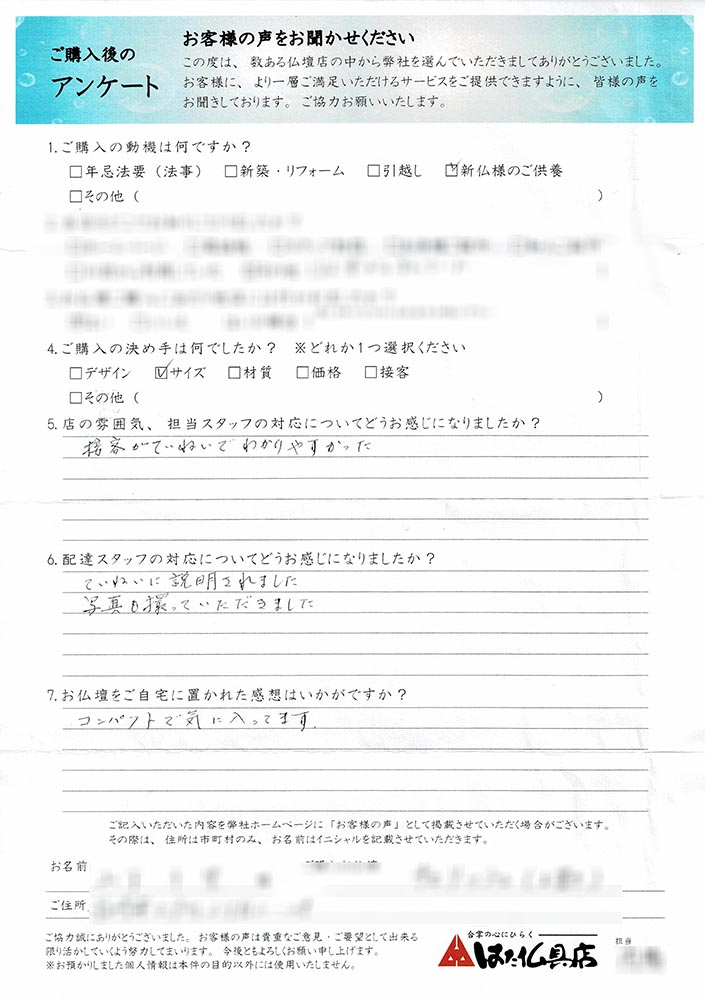 ご購入後の
アンケート
お客様の声をお聞かせください
この度は、数ある仏壇店の中から弊社を選んでいただきましてありがとうございました。
お客様に、より一層ご満足いただけるサービスをご提供できますように、皆様の声を
お聞きしております。ご協力お願いいたします。
1.ご購入の動機は何ですか？
□年忌法要（法事） □新築・リフォーム □引越し ☑新仏様のご供養
□その他（ ）
4.ご購入の決め手は何でしたか？ ※どれか1つ選択ください
□デザイン ☑サイズ □材質 □価格 □接客
□その他（ ）
5.店の雰囲気、担当スタッフの対応についてどうお感じになりましたか？
接客がていねいでわかりやすかった
6.配達スタッフの対応についてどうお感じになりましたか？
ていねいに説明されました
写真も撮っていただきました
7.お仏壇をご自宅に置かれた感想はいかがですか？
コンパクトで気に入ってます.
ご記入いただいた内容を弊社ホームページに「お客様の声」として掲載させていただく場合がございます。
その際は、住所は市町村のみ、お名前はイニシャルを記載させていただきます。
お名前
ご住所
ご協力誠にありがとうございました。お客様の声は貴重なご意見・ご要望として出来る
限り活かしていくよう努力してまいります。今後ともよろしくお願い申し上げます。
※お預かりしました個人情報は本件の目的以外には使用いたしません。
合掌の心にひらく
はた仏具店
担当